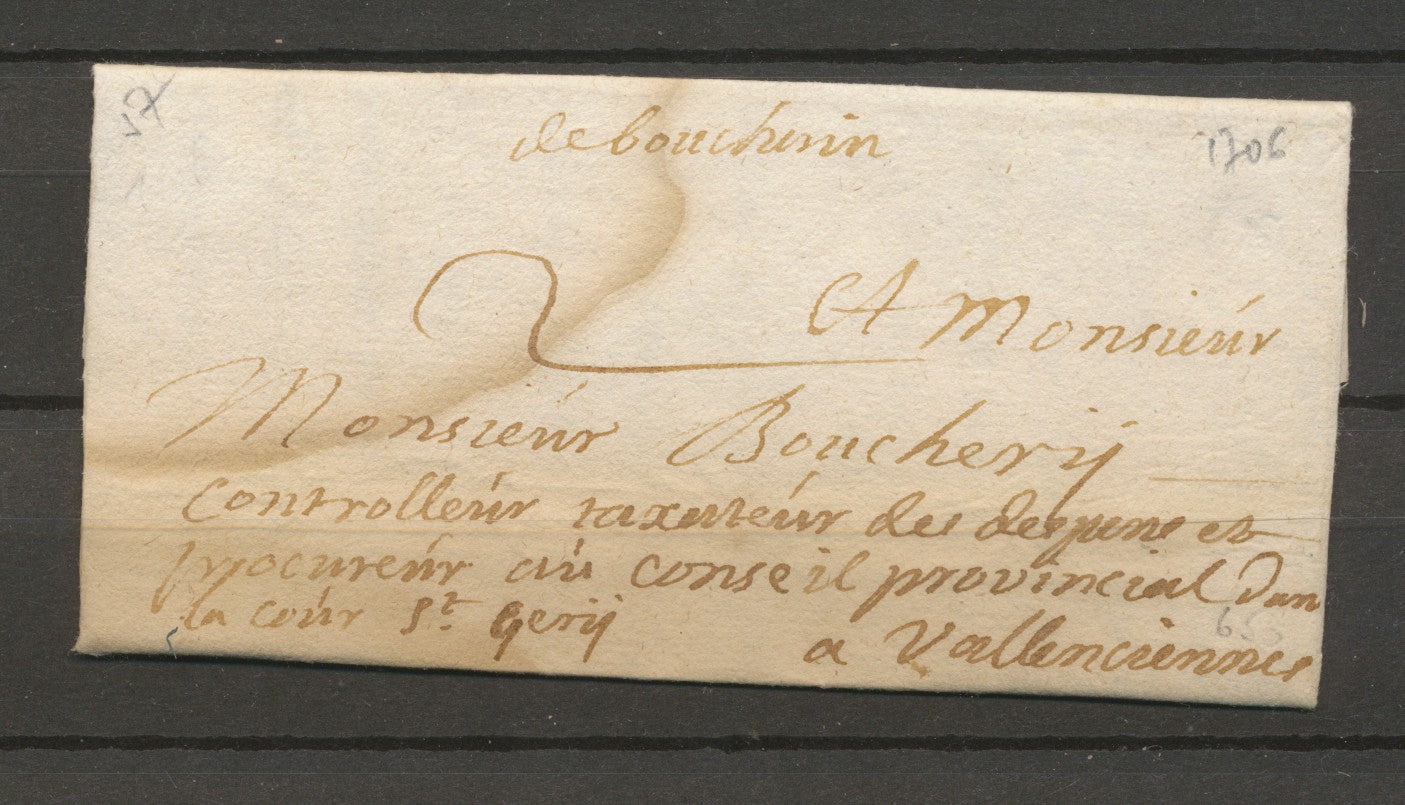 57
1706
de bouchain
2
A Monsieur
Monsieur Boucherij
controlleur taxateur des despens et
procureur au conseil provincial dans
la cour St. Gerij
a Vallenciennes